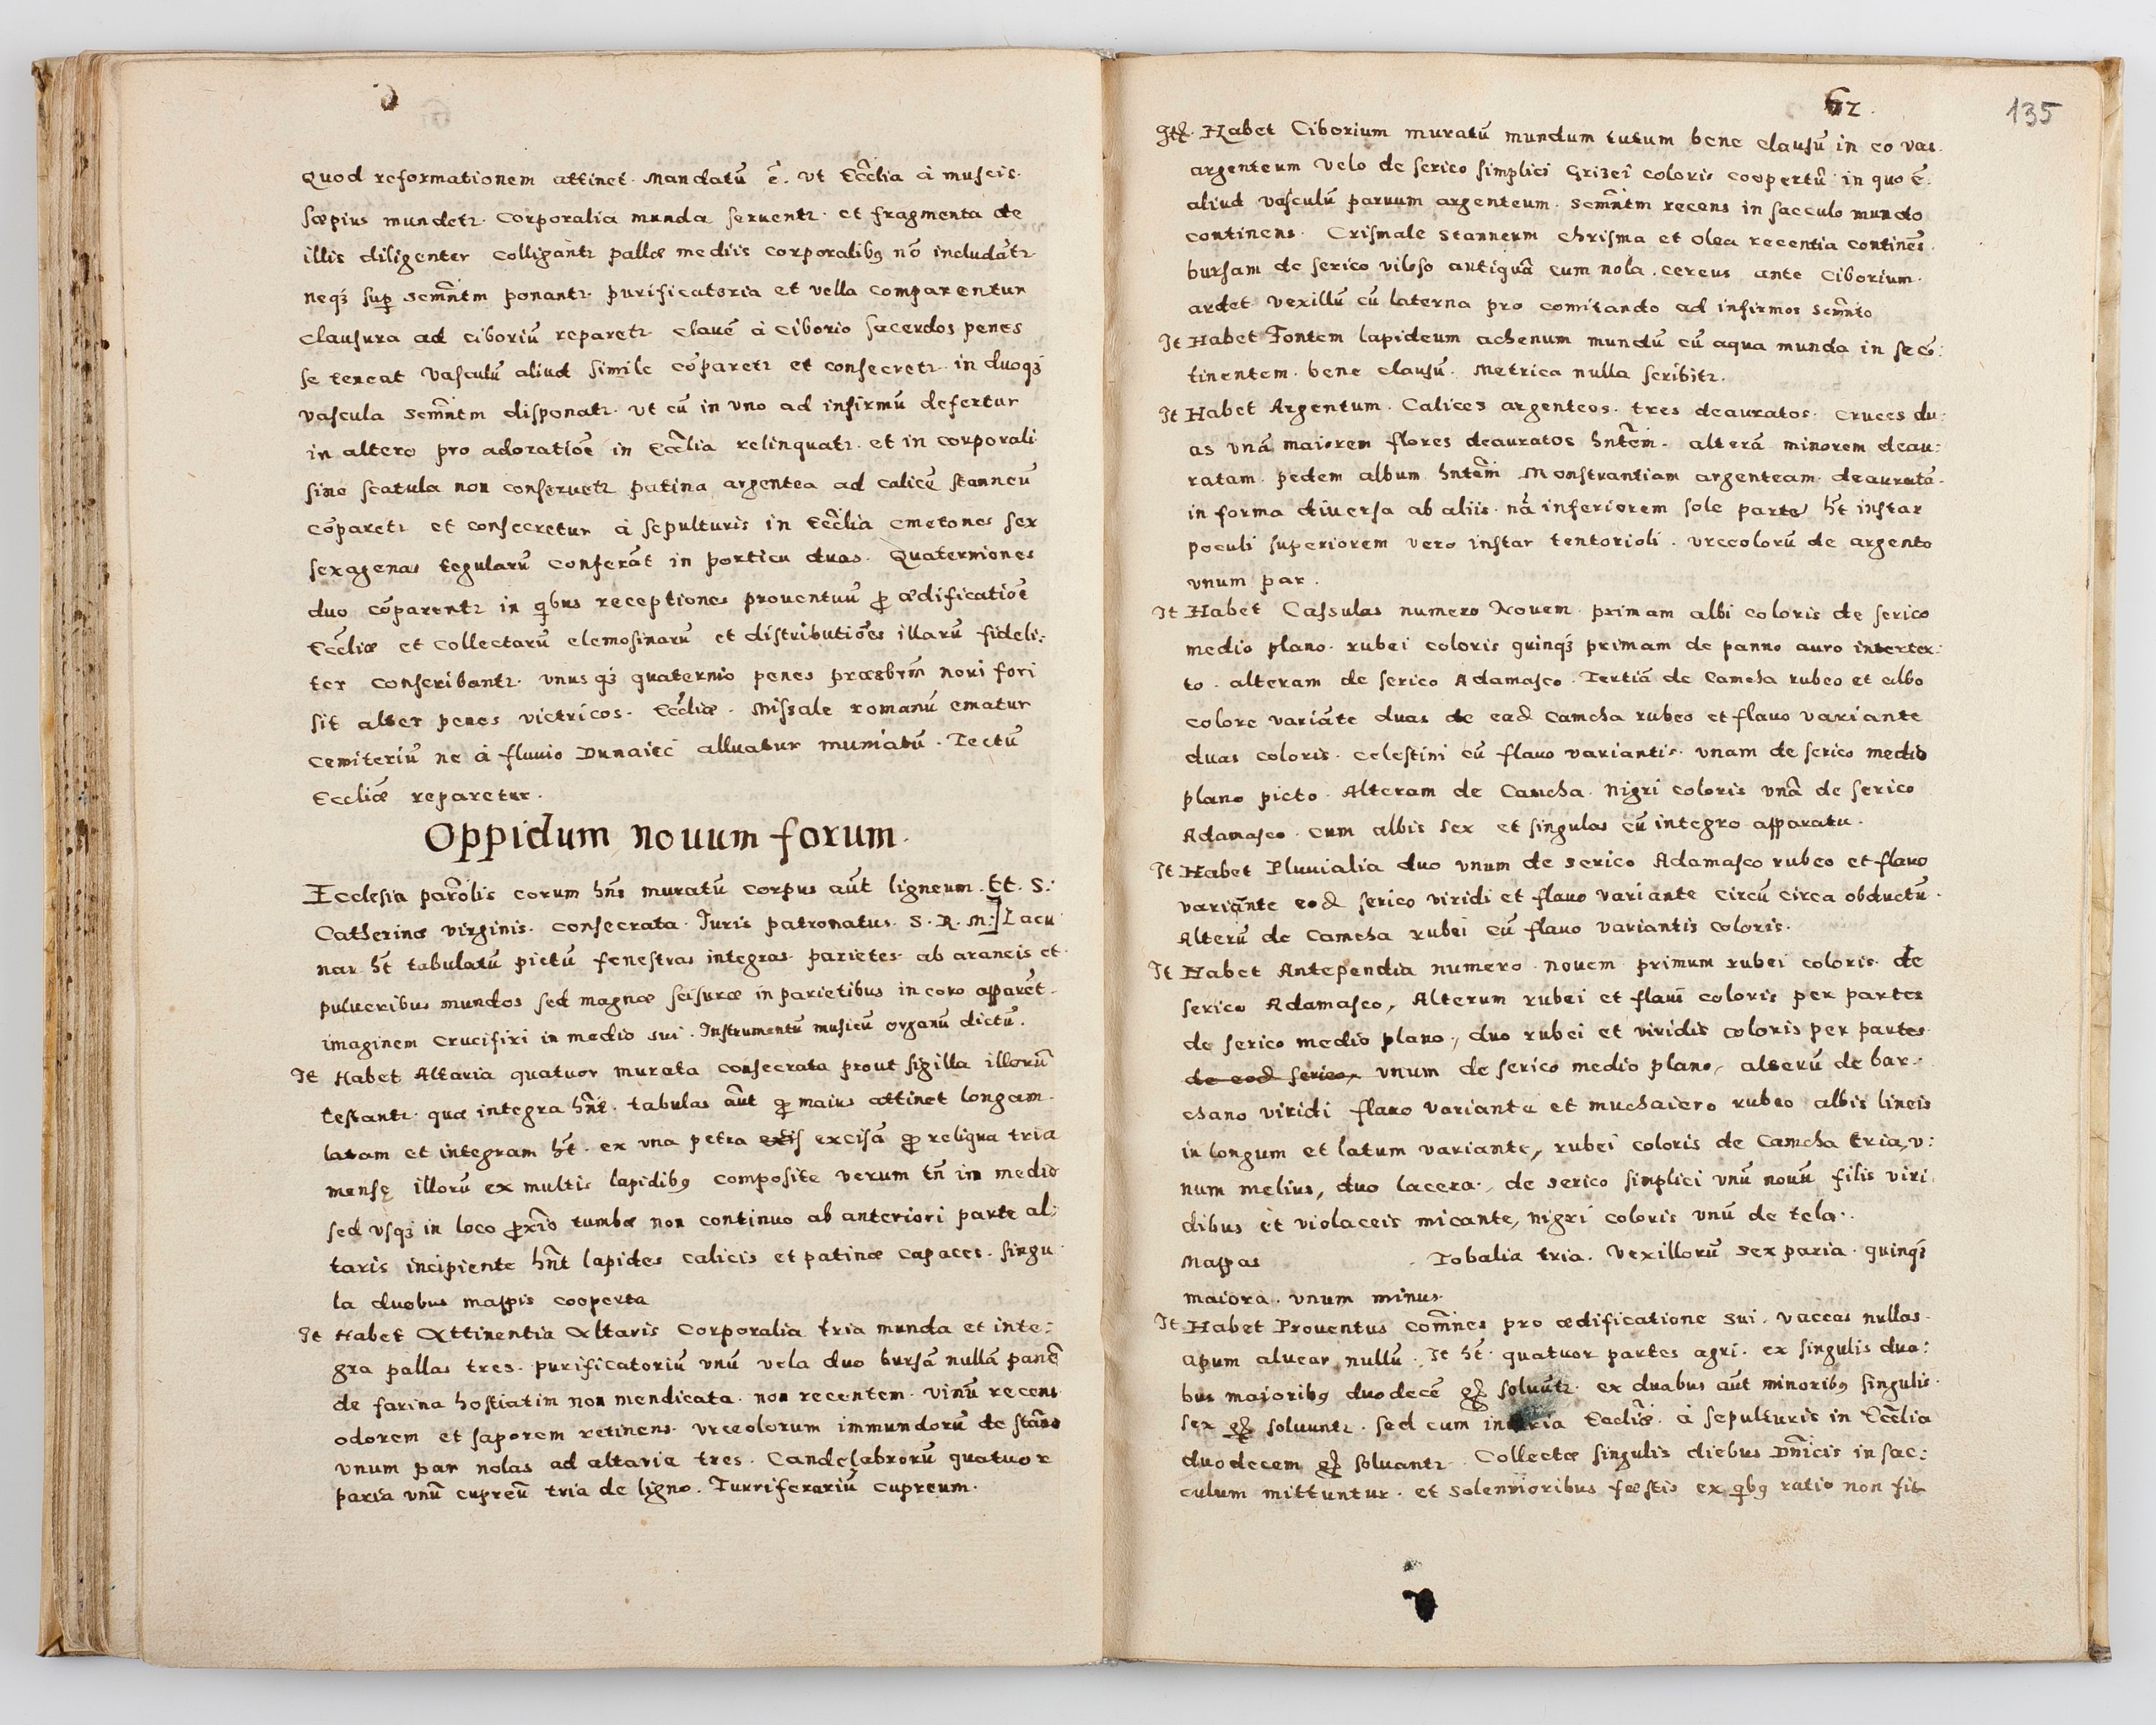 Quod reformationem attinet. Mandatũ ẽ. vt Ecclia à museis.
sæpius mundetr. Corporalia munda seruentr. et fragmenta de
illis diligenter colligantr pallæ mediis corporalibq nõ includãtr
neqз sup semntm ponantr. purificatoria et vella comparentur
clausura ad ciboriũ reparetr. clauẽ à ciborio sacerdos penes
se teneat Vasculũ aliud simile cõparetr et consecretr. in duoqз
vascula semntm disponatr. vt cũ in vno ad infirmũ defertur
in altero pro adoratiõe in Ecclia relinquatr. et in corporali
sine scatula non conseruetr patina argentea ad calicẽ stanneũ
cõparetr et consecretur à sepulturis in Ecclia cmetones sex
sexagenas tegularũ conferãt in porticu duas. Quaterniones
duo cõparentr in qbus receptiones prouentuũ p ædificatiõe
Eccliæ et collectarũ elemosinarũ et distributiões illarũ fideli:
ter conscribantr. vnus qз quaternio penes præsbrm noui fori
sit alter penes victricos. Eccliæ. Missale romanũ ematur
Cemiteriũ ne à fluuio Dunaiec alluatur muniatũ. Tectũ
Eccliæ reparetur.
Oppidum nouum forum.
Ecclesia parolis corum hñs muratũ corpus aũt ligneum. Et. S:
Catherinæ virginis. consecrata. Juris patronatus. S. R. M:] Lacu
nar ht tabulatũ pictũ fenestras integras. parietes ab araneis et
pulueribus mundos sed magnæ scisuræ in parietibus in coro apparet.
imaginem crucifixi in medio sui. Instrumentũ musicũ organũ dictũ.
It Habet Altaria quatuor murata consecrata prout sigilla illorũ
testantr. quæ integra hñt. tabulas aũt q maius attinet longam.
latam et integram ht. ex vna petra exis excisã q reliqua tria
mensę illorũ ex multis lapidibq composite verum tñ in medio
sed vsqз in loco proxio tumbæ non continuo ab anteriori parte al:
taris incipiente hñt lapides calicis et patinæ capaces. singu
la duobus mappis cooperta
It Habet Attinentia Altaris Corporalia tria munda et inte:
gra pallas tres. purificatoriũ vnũ vela duo bursã nullã panẽ
de farina hostiatim non mendicata. non recentem. vinũ recens
odorem et saporem retinens. vrceolorum immundorũ de stãno
vnum par nolas ad altaria tres. Candelabrorũ quatuor
paria vnũ cupreũ tria de ligno. Turriferariũ cupreum.
62.
135
Habet Ciborium muratũ mundum tutum bene clausũ in eo vas.
argenteum velo de serico simplici Grizei coloris coopertũ in quo ẽ.
aliud vasculũ paruum argenteum. semntm recens in sacculo mundo
continens. Crismale stanneum chrisma et olea recentia continẽs.
bursam de serico viloso antiquã cum nola. cereus ante Ciborium.
ardet vexillũ cũ laterna pro comitando ad infirmos semnto
It Habet Fontem lapideum achenum mundũ cũ aqua munda in se cõ:
tinentem. bene clausũ. Metrica nulla scribitr.
It Habet Argentum. Calices argenteos. tres deauratos. cruces du:
as vnã maiorem flores deauratos hntem. alterã minorem deau:
ratam. pedem album hntem Monstrantiam argenteam. deauratã.
in forma diuersa ab aliis. nã inferiorem sole parte ht instar
poculi superiorem vero instar tentorioli. vrecolorũ de argento
vnum par.
It Habet Cassulas numero Nouem. primam albi coloris de serico
medio plano. rubei coloris quinqз primam de panno auro intertex:
to. alteram de serico Adamasco. Tertiã de Camcha rubeo et albo
colore variãte duas de ead Camcha rubeo et flauo variante
duas coloris. celestini cũ flauo variantis. vnam de serico medio
plano picto. Alteram de Camcha. Nigri coloris vnã de serico
Adamasco. cum albis sex et singulas cũ integro apparatu.
It Habet Pluuialia duo vnum de serico Adamasco rubeo et flauo
variãnte eod serico viridi et flauo variante circũ circa obductũ.
Alterũ de Camcha rubei cũ flauo variantis coloris.
It Habet Antependia numero. nouem primum rubei coloris de
serico Adamasco, Alterum rubei et flaui coloris per partes
de serico medio plano, duo rubei et viridis coloris per partes
de eod serico, vnum de serico medio plano, alterũ de bar:
chano viridi flauo variante et muchaiero rubeo albis lineis
in longum et latum variante, rubei coloris de Camcha tria, v:
num melius, duo lacera, de serico simplici vnũ nouũ filis viri
dibus et violaceis micante, nigri coloris vnũ de tela.
Mappas Tobalia tria. Vexillorũ sex paria. quinqз
maiora. vnum minus.
It Habet Prouentus comnes pro ædificatione sui. vaccas nullas.
apum aluear nullũ. It ht. quatuor partes agri. ex singulis dua:
bus maioribq duodecẽ soluũtr. ex duabus aũt minoribq singulis.
sex soluuntr. sed cum Eccliæ. à sepulturis in Ecclia
duodecem soluantr. Collectæ singulis diebus Dnicis in sac:
culum mittuntur. et solennioribus fæstis ex qbq ratio non fit